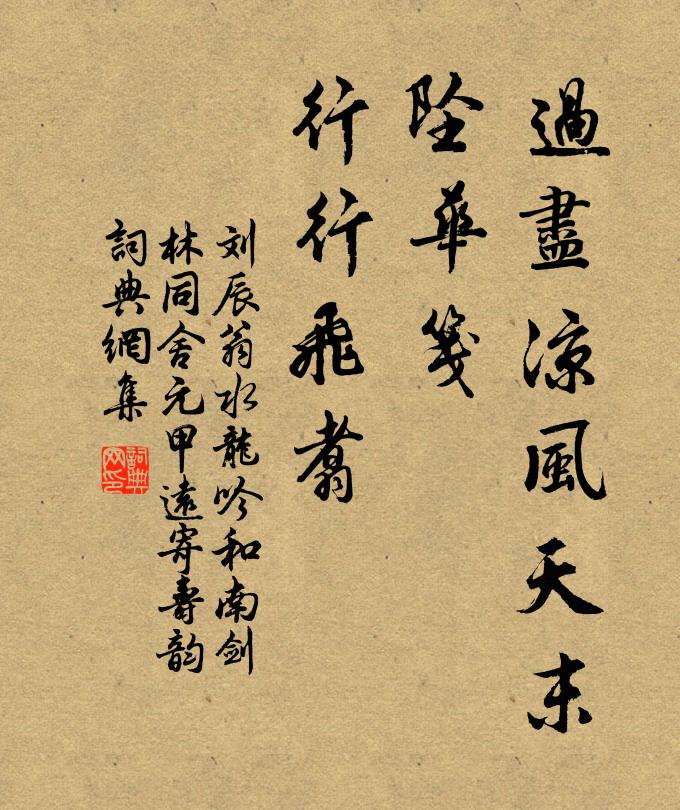 過盡涼風天末
墜華箋
行行飛翥
刘辰翁水龍吟和南剑
林同舍元甲遠寄壽韵
詞典網集
詞典
网印